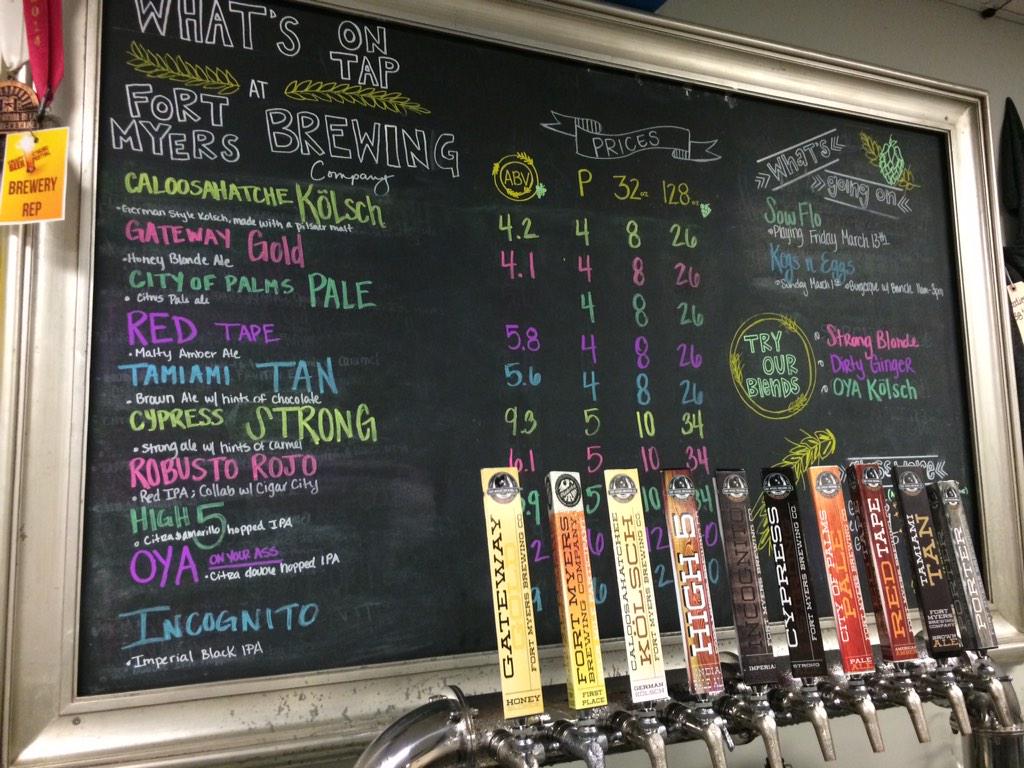 WHAT'S ON TAP
AT
FORT MYERS BREWING
Company
ABV P 32oz 128oz
PRICES
CALOOSAHATCHE KÖLSCH 4.2 4 8 26
German Style Kolsch, made with a pilsner malt
GATEWAY Gold 4.1 4 8 26
Honey Blonde Ale
CITY OF PALMS PALE 4 8 26
Citrus Pale ale
RED TAPE 5.8 4 8 26
Malty Amber Ale
TAMIAMI TAN 5.6 4 8 26
Brown Ale w/ hints of chocolate
CYPRESS STRONG 9.3 5 10 34
Strong ale w/ hints of carmel
ROBUSTO ROJO 6.1 5 10 34
Red IPA; Collab w/ Cigar City
HIGH 5 5 10
Citra & amarillo hopped IPA
OYA ON YOUR ASS
Citra double hopped IPA
INCOGNITO
Imperial Black IPA
What's going on
SowFlo
Playing Friday March 13th
Kegs n Eggs
Sunday March 1st
TRY OUR Blends
Strong Blonde
Dirty Ginger
OYA Kölsch
2014
BREWERY REP
GATEWAY
FORT MYERS BREWING CO.
HONEY
FORT MYERS
BREWING COMPANY
FIRST PLACE
CALOOSAHATCHEE
KÖLSCH
FORT MYERS BREWING CO.
GERMAN KÖLSCH
HIGH 5
FORT MYERS BREWING CO.
INDIA
INCOGNITO
FORT MYERS BREWING CO.
IMPERIAL
CYPRESS
FORT MYERS BREWING CO.
STRONG
CITY OF PALMS
PALE
PALE ALE
RED TAPE
FORT MYERS BREWING CO.
AMERICAN AMBER
TAMIAMI
TAN
FORT MYERS BREWING COMPANY
BROWN ALE
PORTER